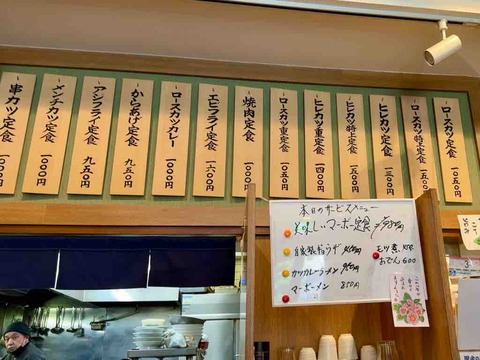 ロースカツ定食 一〇五〇円
ロースカツ特上定食
ヒレカツ定食
ヒレカツ特上定食
ヒレカツ重定食 一四〇〇円
ロースカツ重定食 一〇五〇円
焼肉定食 一〇〇〇円
エビフライ定食 一六〇〇円
ロースカツカレー 一〇〇〇円
からあげ定食 九五〇円
アジフライ定食 九五〇円
メンチカツ定食 一〇〇〇円
串カツ定食 一〇〇〇円
本日のサービスメニュー
美味しいマーボー定食
自家製餃子
カツカレーラーメン
マーボーメン 850円
モツ煮
おでん 600